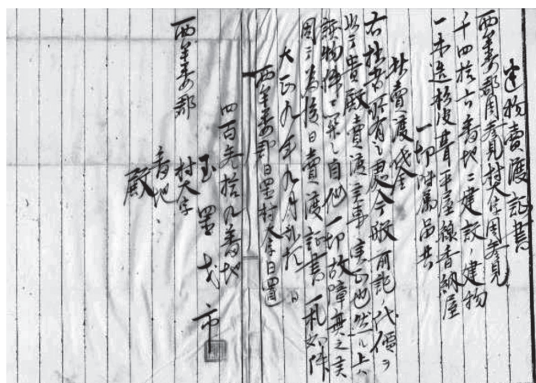 建物賣渡証書
西牟婁郡周参見村大字周参見
千四拾六番地ニ建設ノ建物
一木造杉皮葺平屋線香納屋
一切附属品共
此賣渡代金
右拙者所有之處今般前記ノ代價ヲ
以テ貴殿賣渡候事実正也然ル上ハ
該物件ニ関シ自他一切故障無之候
因テ為後日賣渡証書一札如件
大正九年九月 日
西牟婁郡日置村大字日置
四百 拾九番地
玉置
西牟婁郡
村大字
番地
殿